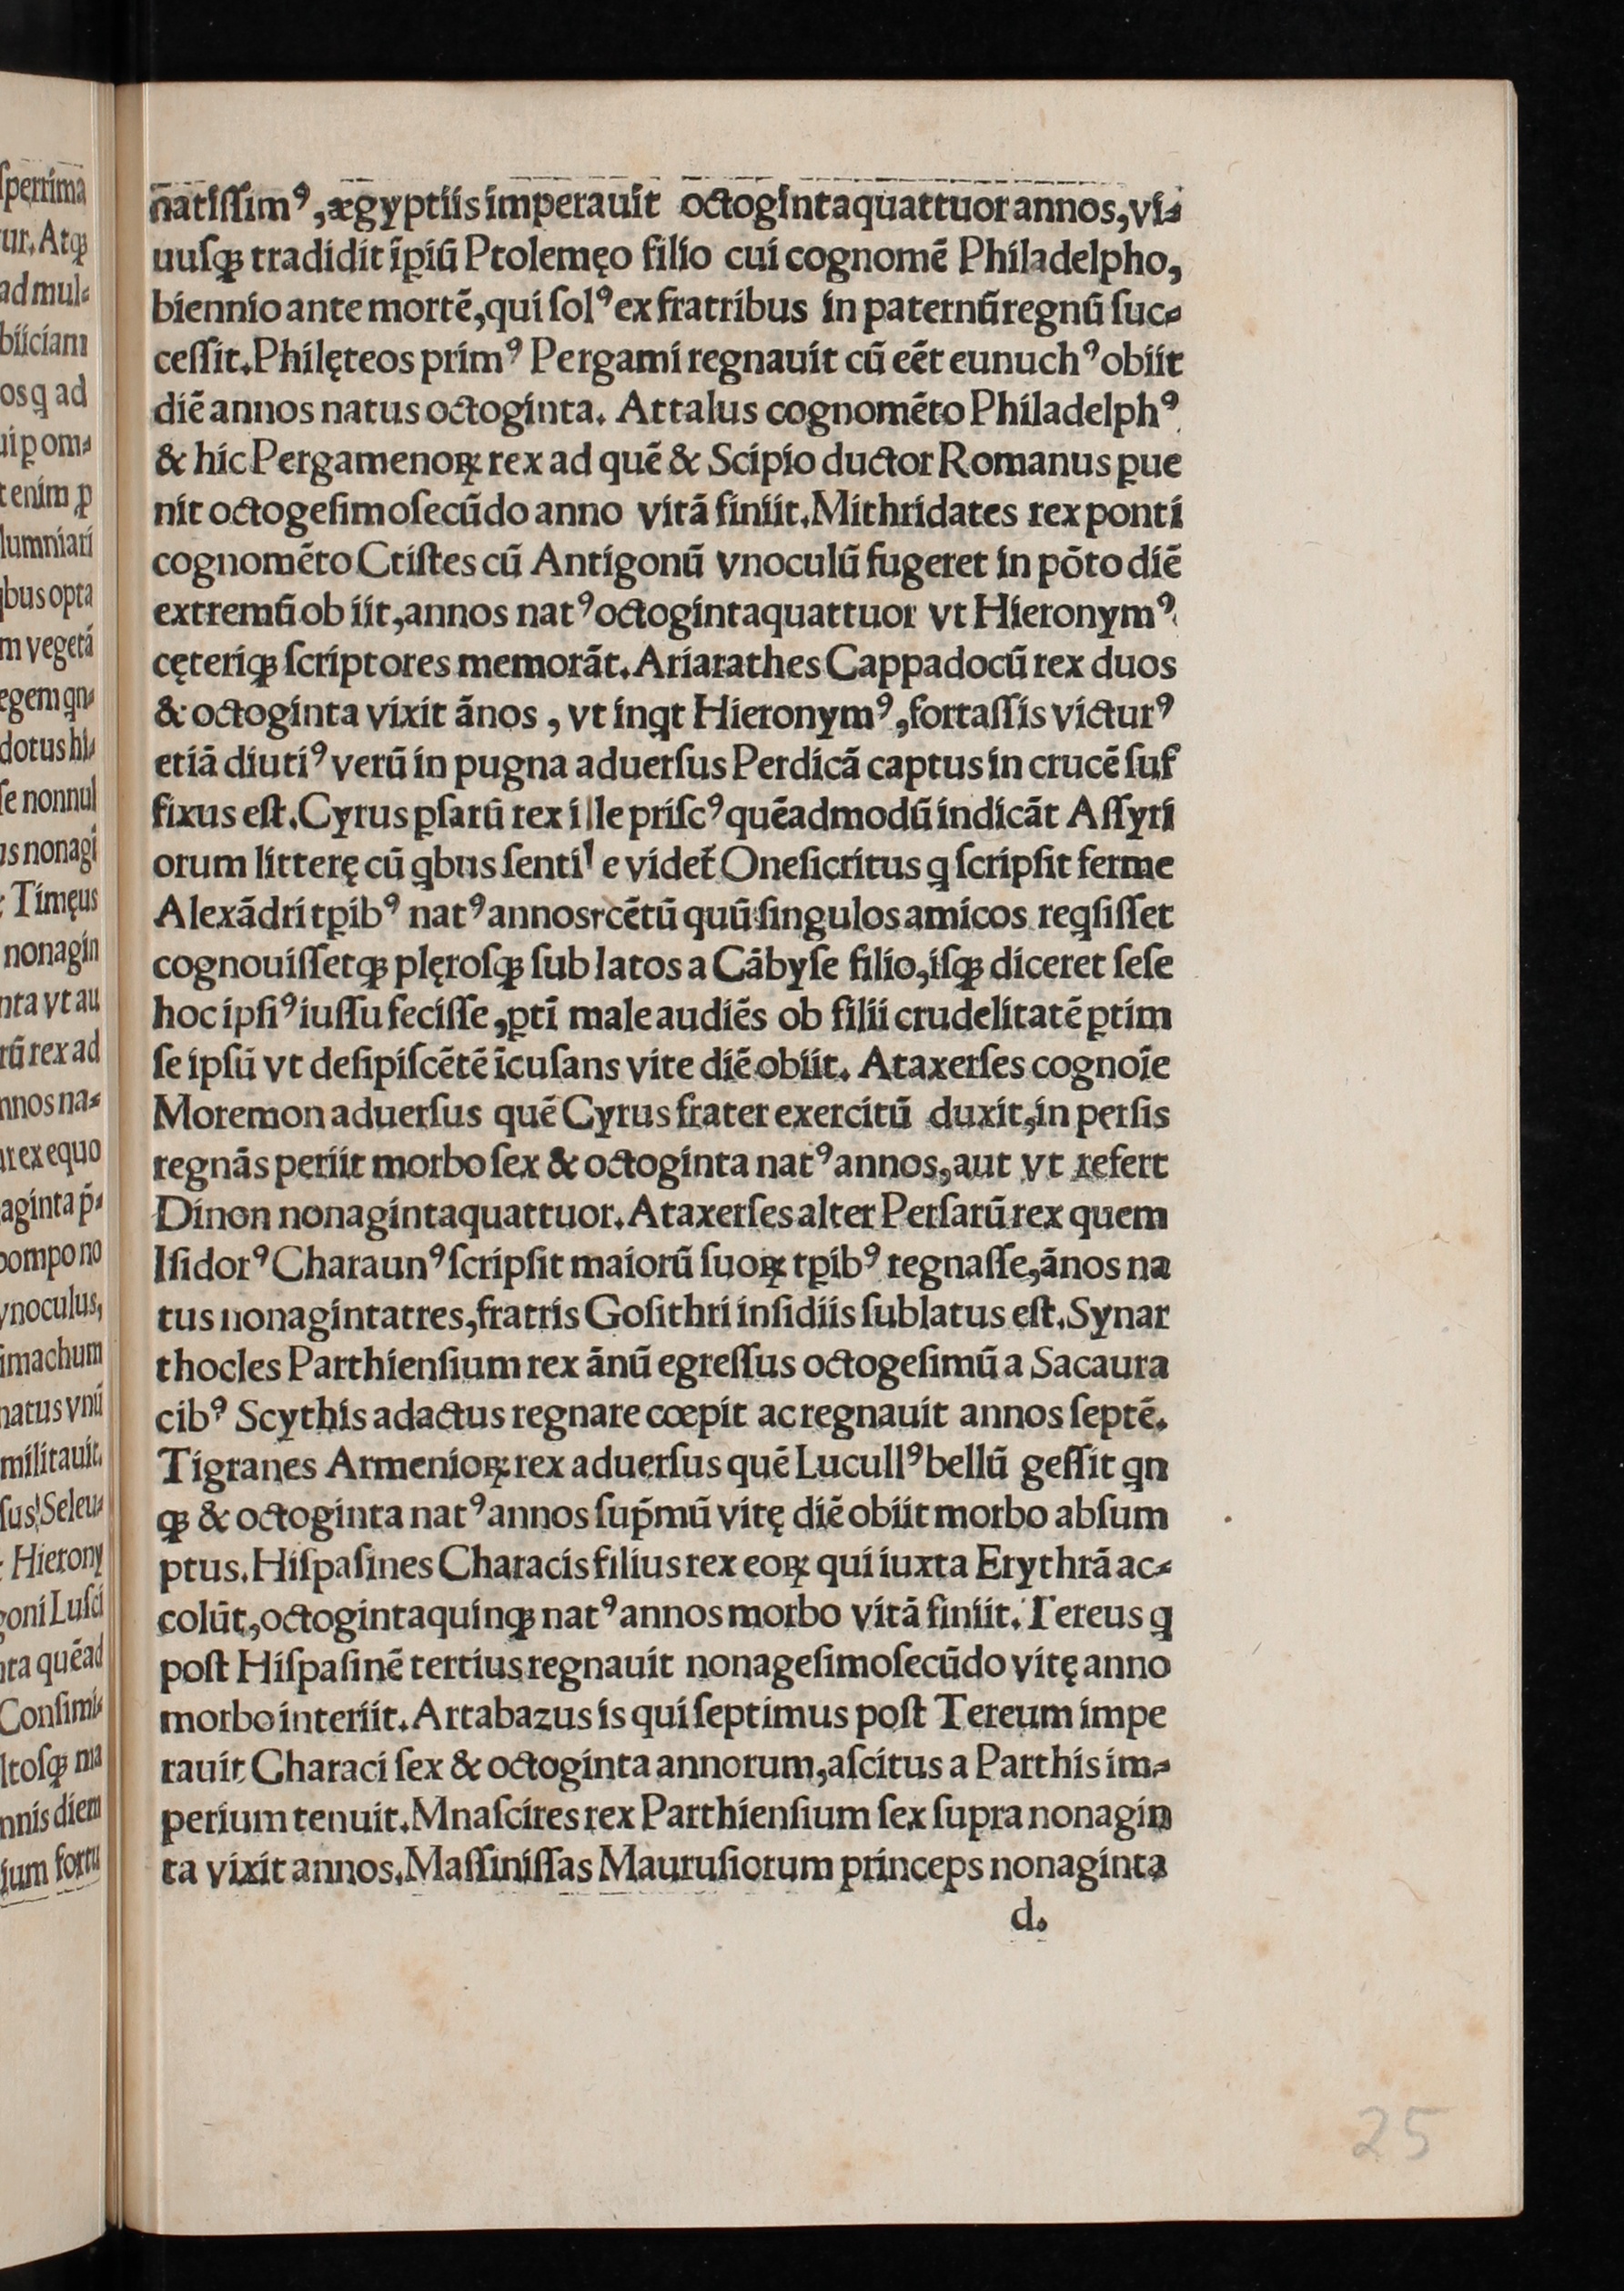 n̄atissimꝰ, ægyptiis imperauit octogintaquattuor annos, vi⸗
uusqꝫ tradidit īpiū Ptolemęo filio cui cognomē Philadelpho,
biennio ante mortē, qui solꝰ ex fratribus in paternū regnū suc⸗
ceſſit. Philęteos primꝰ Pergami regnauit cū eēt eunuchꝰ obiit
diē annos natus octoginta. Attalus cognomēto Philadelphꝰ
& hic Pergamenoꝝ rex ad quē & Scipio ductor Romanus ꝑue
nit octogeſimoſecūdo anno vitā finiit. Mithridates rex ponti
cognomēto Ctiſtes cū Antigonū vnoculū fugeret in pōto diē
extremū ob iit, annos natꝰ octogintaquattuor vt Hieronymꝰ
cęteriqꝫ ſcriptores memorāt. Ariarathes Cappadocū rex duos
& octoginta vixit ānos, vt inqt Hieronymꝰ, fortaſſis victurꝰ
etiā diutiꝰ verū in pugna aduerſus Perdicā captus in crucē ſuf
fixus eſt. Cyrus ꝑſarū rex ille priſcꝰ quēadmodū indicāt Aſſyri
orum litterę cū qbus ſentil e videt̄ Oneſicritus q ſcripſit ferme
Alexādri tꝑibꝰ natꝰ annos cētū quū ſingulos amicos reqſiſſet
cognouiſſetqꝫ plęroſqꝫ ſub latos a Cābyſe filio, iſqꝫ diceret ſeſe
hoc ipſiꝰ iuſſu feciſſe, ꝑtī male audiēs ob filii crudelitatē ꝑtim
ſe ipſū vt deſipiſcētē īcuſans vite diē obiit. Ataxerſes cognoīe
Moremon aduerſus quē Cyrus frater exercitū duxit, in perſis
regnās periit morbo ſex & octoginta natꝰ annos, aut vt refert
Dinon nonagintaquattuor. Ataxerſes alter Perſarū rex quem
Iſidorꝰ Charaunꝰ ſcripſit maiorū ſuoꝝ tꝑibꝰ regnaſſe, ānos na
tus nonagintatres, fratris Goſithri inſidiis ſublatus eſt. Synar
thocles Parthienſium rex ānū egreſſus octogeſimū a Sacaura
cibꝰ Scythis adactus regnare cœpit ac regnauit annos ſeptē.
Tigranes Armenioꝝ rex aduerſus quē Lucullꝰ bellū geſſit qn
qꝫ & octoginta natꝰ annos ſup̄mū vitę diē obiit morbo abſum
ptus. Hiſpaſines Characis filius rex eoꝝ qui iuxta Erythrā ac⸗
colūt, octogintaquinqꝫ natꝰ annos morbo vitā finiit. Tereus q
poſt Hiſpaſinē tertius regnauit nonageſimoſecūdo vitę anno
morbo interiit. Artabazus is qui ſeptimus poſt Tereum impe
rauit Characi ſex & octoginta annorum, aſcitus a Parthis im⸗
perium tenuit. Mnaſcires rex Parthienſium ſex ſupra nonagin
ta vixit annos. Maſſiniſſas Mauruſiorum princeps nonaginta
d.
25